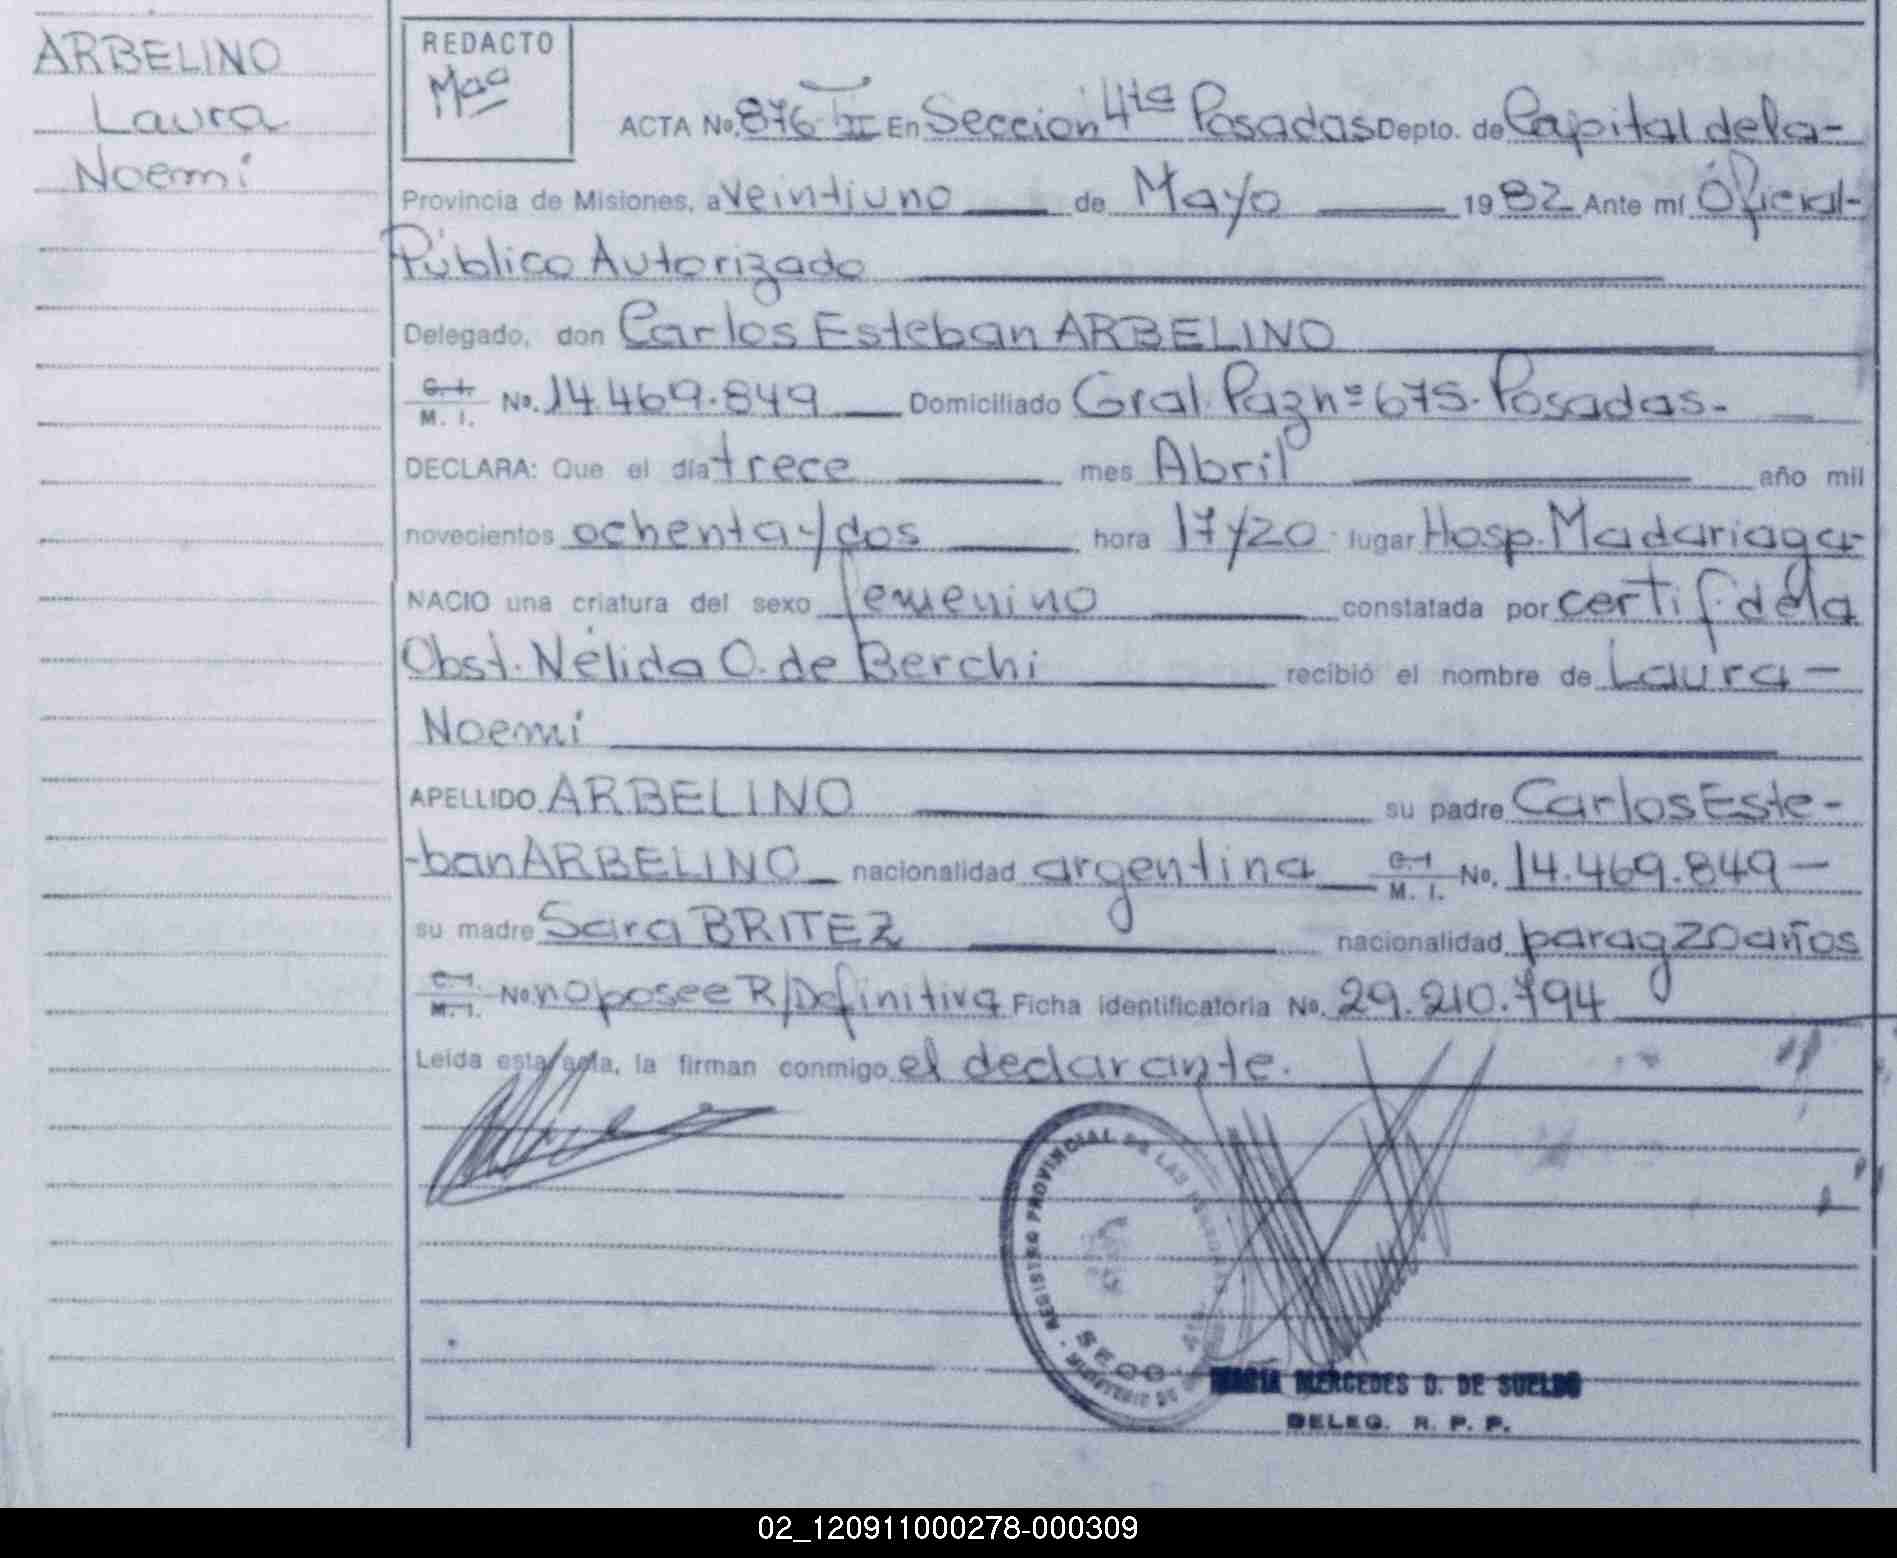 ARBELINO
Laura
Noemí
REDACTO
Maa
ACTA No. 876 II En Sección 4ta Posadas Depto. de Capital de la-
Provincia de Misiones, a veintiuno de Mayo 1982 Ante mí Oficial-
Público Autorizado
Delegado, don Carlos Esteban ARBELINO
C. I. M. I. No. 14.469.849 Domiciliado Gral. Paz nº 675. Posadas-
DECLARA: Que el día trece mes Abril año mil
novecientos ochenta y dos hora 17 y 20 lugar Hosp. Madariaga-
NACIO una criatura del sexo femenino constatada por certif. de la
Obst. Nélida O. de Berchi recibió el nombre de Laura-
Noemí
APELLIDO ARBELINO su padre Carlos Este-
-ban ARBELINO nacionalidad argentina C. I. M. I. No. 14.469.849-
su madre Sara BRITEZ nacionalidad parag 20 años
C. I. M. I. No. no posee R/Definitiva Ficha identificatoria No. 29.210.794
Leída esta acta, la firman conmigo el declarante.
REGISTRO PROVINCIAL DE LAS
MINISTERIO DE
MARIA MERCEDES D. DE SUELDO
DELEG. R. P. P.
02_120911000278-000309